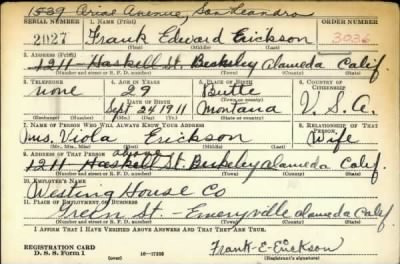 1539 Arial Avenue, San Leandro
SERIAL NUMBER 1. NAME (Print) ORDER NUMBER
2027 Frank Edward Erickson 3036
(First) (Middle) (Last)
2. ADDRESS (Print)
1211 - Haskell St. Berkeley Alameda Calif.
(Number and street or R. F. D. number) (Town) (County) (State)
3. TELEPHONE 4. AGE IN YEARS 5. PLACE OF BIRTH 6. COUNTRY OF CITIZENSHIP
none 29 Butte
DATE OF BIRTH (Town or county)
Sept 24 1911 Montana U. S. A.
(Mo.) (Day) (Yr.) (State or country)
7. NAME OF PERSON WHO WILL ALWAYS KNOW YOUR ADDRESS 8. RELATIONSHIP OF THAT PERSON
Mrs. Viola Erickson Wife
(Mr., Mrs., Miss) (First) (Middle) (Last)
9. ADDRESS OF THAT PERSON above
1211 - Haskell St. Berkeley Alameda Calif.
(Number and street or R. F. D. number) (Town) (County) (State)
10. EMPLOYER'S NAME
Westing House Co
11. PLACE OF EMPLOYMENT OR BUSINESS
St. - Emeryville Alameda Calif
(Number and street or R. F. D. number) (Town) (County) (State)
I AFFIRM THAT I HAVE VERIFIED ABOVE ANSWERS AND THAT THEY ARE TRUE.
REGISTRATION CARD
D. S. S. Form 1 16-17105 Frank-E-Erickson
(Registrant's signature)